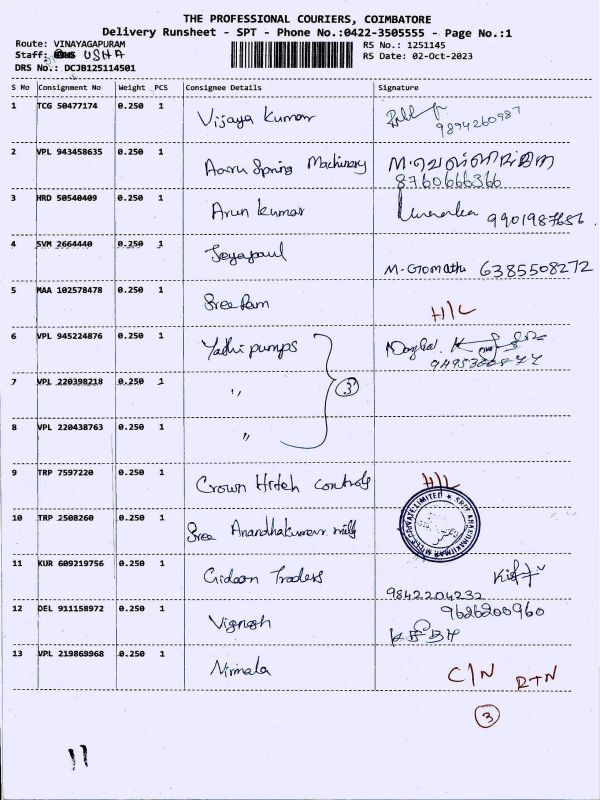 THE PROFESSIONAL COURIERS, COIMBATORE
Delivery Runsheet - SPT - Phone No.:0422-3505555 - Page No.:1
Route: VINAYAGAPURAM
RS No.: 1251145
Staff: USHA
RS Date: 02-Oct-2023
DRS No.: DCJB125114501
S No Consignment No Weight PCS Consignee Details Signature
1 TCG 50477174 0.250 1 Vijaya Kumar
9894260987
2 VPL 943458635 0.250 1 Aaru Spring Machinery
8760666366
3 HRD 50540409 0.250 1 Arun kumar 9901987656
4 SVM 2664440 0.250 1 Jeyapaul
M. Gomathi 6385508272
5 MAA 102578478 0.250 1 Sree Ram H/L
6 VPL 945224876 0.250 1 Yathi pumps
7 VPL 220398218 0.250 1 " 3
8 VPL 220438763 0.250 1 "
9 TRP 7597220 0.250 1 Crown Hitech controls H/L
10 TRP 2508260 0.250 1 Sree Anandhakumar mills
11 KUR 609219756 0.250 1 Gideon Traders
9842204232
12 DEL 911158972 0.250 1 Vignesh 9626200960
13 VPL 219869968 0.250 1 Nirmala C/N RTN
3
11